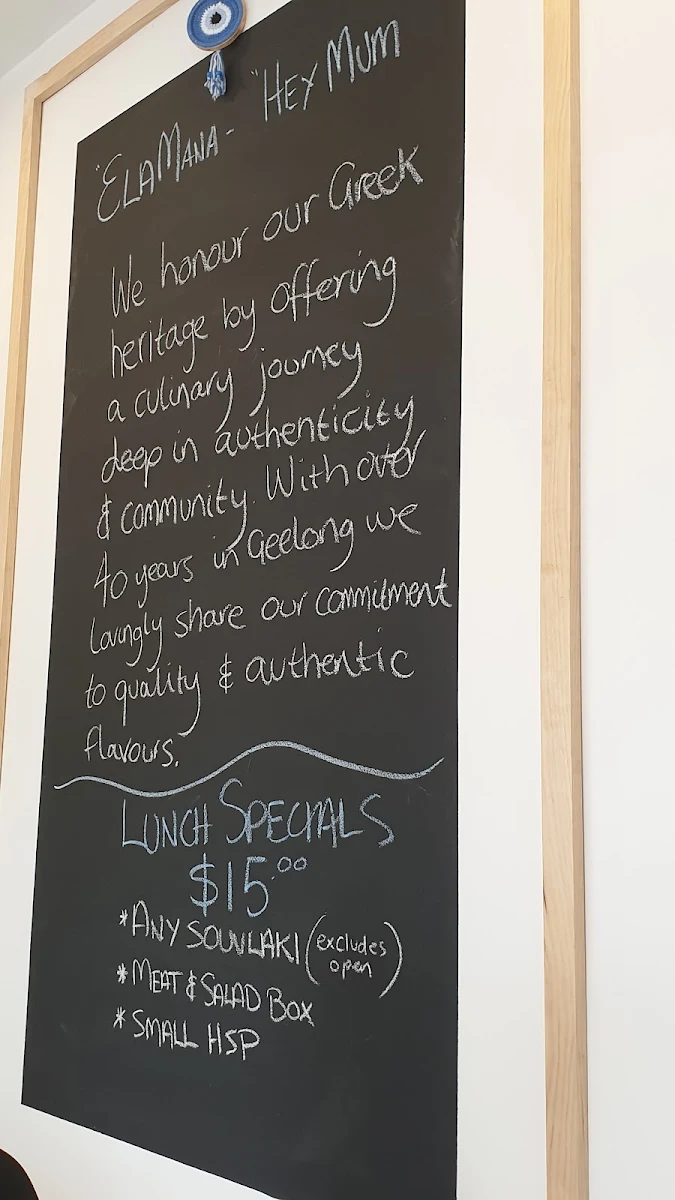 "ELA MANA - "HEY MUM
We honour our Greek
heritage by offering
a culinary journey
deep in authenticity
& community. With over
40 years in Geelong we
lovingly share our commitment
to quality & authentic
flavours.
LUNCH SPECIALS
$15.00
*ANY SOUVLAKI (excludes
open)
*MEAT & SALAD BOX
*SMALL HSP